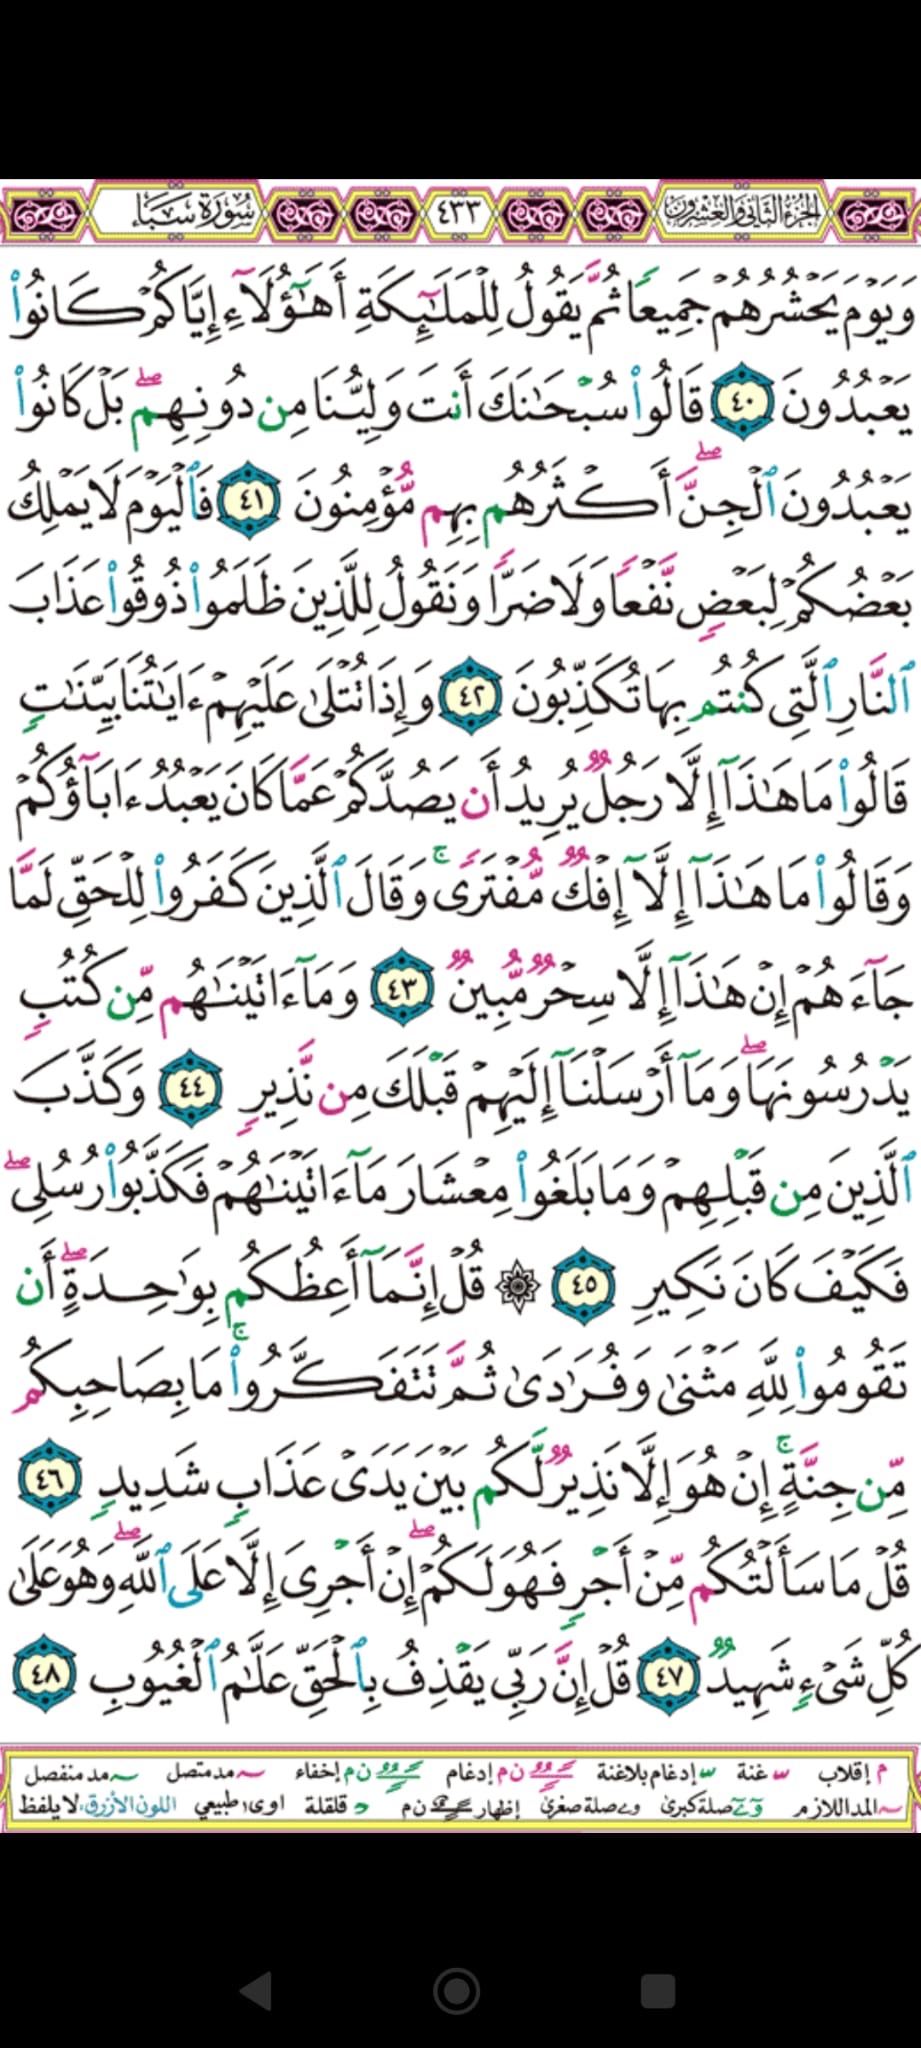 الجزء الثاني والعشرون ٤٣٣ سُورَةُ سَبَإٍ
وَيَوْمَ يَحْشُرُهُمْ جَمِيعًا ثُمَّ يَقُولُ لِلْمَلَٰٓئِكَةِ أَهَٰٓؤُلَآءِ إِيَّاكُمْ كَانُوا۟
يَعْبُدُونَ ٤٠ قَالُوا۟ سُبْحَٰنَكَ أَنتَ وَلِيُّنَا مِن دُونِهِم ۖ بَلْ كَانُوا۟
يَعْبُدُونَ ٱلْجِنَّ ۖ أَكْثَرُهُم بِهِم مُّؤْمِنُونَ ٤١ فَٱلْيَوْمَ لَا يَمْلِكُ
بَعْضُكُمْ لِبَعْضٍ نَّفْعًا وَلَا ضَرًّا وَنَقُولُ لِلَّذِينَ ظَلَمُوا۟ ذُوقُوا۟ عَذَابَ
ٱلنَّارِ ٱلَّتِى كُنتُم بِهَا تُكَذِّبُونَ ٤٢ وَإِذَا تُتْلَىٰ عَلَيْهِمْ ءَايَٰتُنَا بَيِّنَٰتٍ
قَالُوا۟ مَا هَٰذَآ إِلَّا رَجُلٌ يُرِيدُ أَن يَصُدَّكُمْ عَمَّا كَانَ يَعْبُدُ ءَابَآؤُكُمْ
وَقَالُوا۟ مَا هَٰذَآ إِلَّآ إِفْكٌ مُّفْتَرًى ۚ وَقَالَ ٱلَّذِينَ كَفَرُوا۟ لِلْحَقِّ لَمَّا
جَآءَهُمْ إِنْ هَٰذَآ إِلَّا سِحْرٌ مُّبِينٌ ٤٣ وَمَآ ءَاتَيْنَٰهُم مِّن كُتُبٍ
يَدْرُسُونَهَا ۖ وَمَآ أَرْسَلْنَآ إِلَيْهِمْ قَبْلَكَ مِن نَّذِيرٍ ٤٤ وَكَذَّبَ
ٱلَّذِينَ مِن قَبْلِهِمْ وَمَا بَلَغُوا۟ مِعْشَارَ مَآ ءَاتَيْنَٰهُمْ فَكَذَّبُوا۟ رُسُلِى ۖ
فَكَيْفَ كَانَ نَكِيرِ ٤٥ ۞ قُلْ إِنَّمَآ أَعِظُكُم بِوَٰحِدَةٍ ۖ أَن
تَقُومُوا۟ لِلَّهِ مَثْنَىٰ وَفُرَٰدَىٰ ثُمَّ تَتَفَكَّرُوا۟ ۚ مَا بِصَاحِبِكُم
مِّن جِنَّةٍ ۚ إِنْ هُوَ إِلَّا نَذِيرٌ لَّكُم بَيْنَ يَدَىْ عَذَابٍ شَدِيدٍ ٤٦
قُلْ مَا سَأَلْتُكُم مِّنْ أَجْرٍ فَهُوَ لَكُمْ ۖ إِنْ أَجْرِىَ إِلَّا عَلَى ٱللَّهِ ۖ وَهُوَ عَلَىٰ
كُلِّ شَىْءٍ شَهِيدٌ ٤٧ قُلْ إِنَّ رَبِّى يَقْذِفُ بِٱلْحَقِّ عَلَّٰمُ ٱلْغُيُوبِ ٤٨
م إقلاب غنة إدغام بلاغنة ن م إدغام ن م إخفاء مد متصل مد منفصل
المد اللازم صلة كبرى صلة صغرى إظهار ن م قلقلة اوى طبيعي اللون الأزرق لا يلفظ